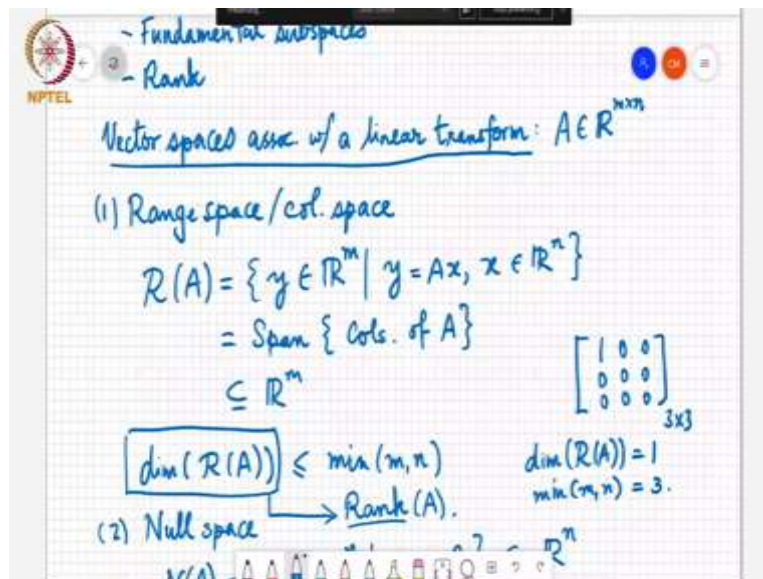 - Fundamental subspaces
- Rank
NPTEL
Vector spaces assoc w/ a linear transform: A ∈ R^{m×n}
(1) Range space/col. space
R(A) = { y ∈ R^m | y = Ax, x ∈ R^n }
= Span { Cols. of A }
⊆ R^m
[ 1 0 0
0 0 0
0 0 0 ] 3x3
dim(R(A)) ≤ min(m,n)
→ Rank(A).
dim(R(A)) = 1
min(m,n) = 3.
(2) Null space
N(A)
R^n